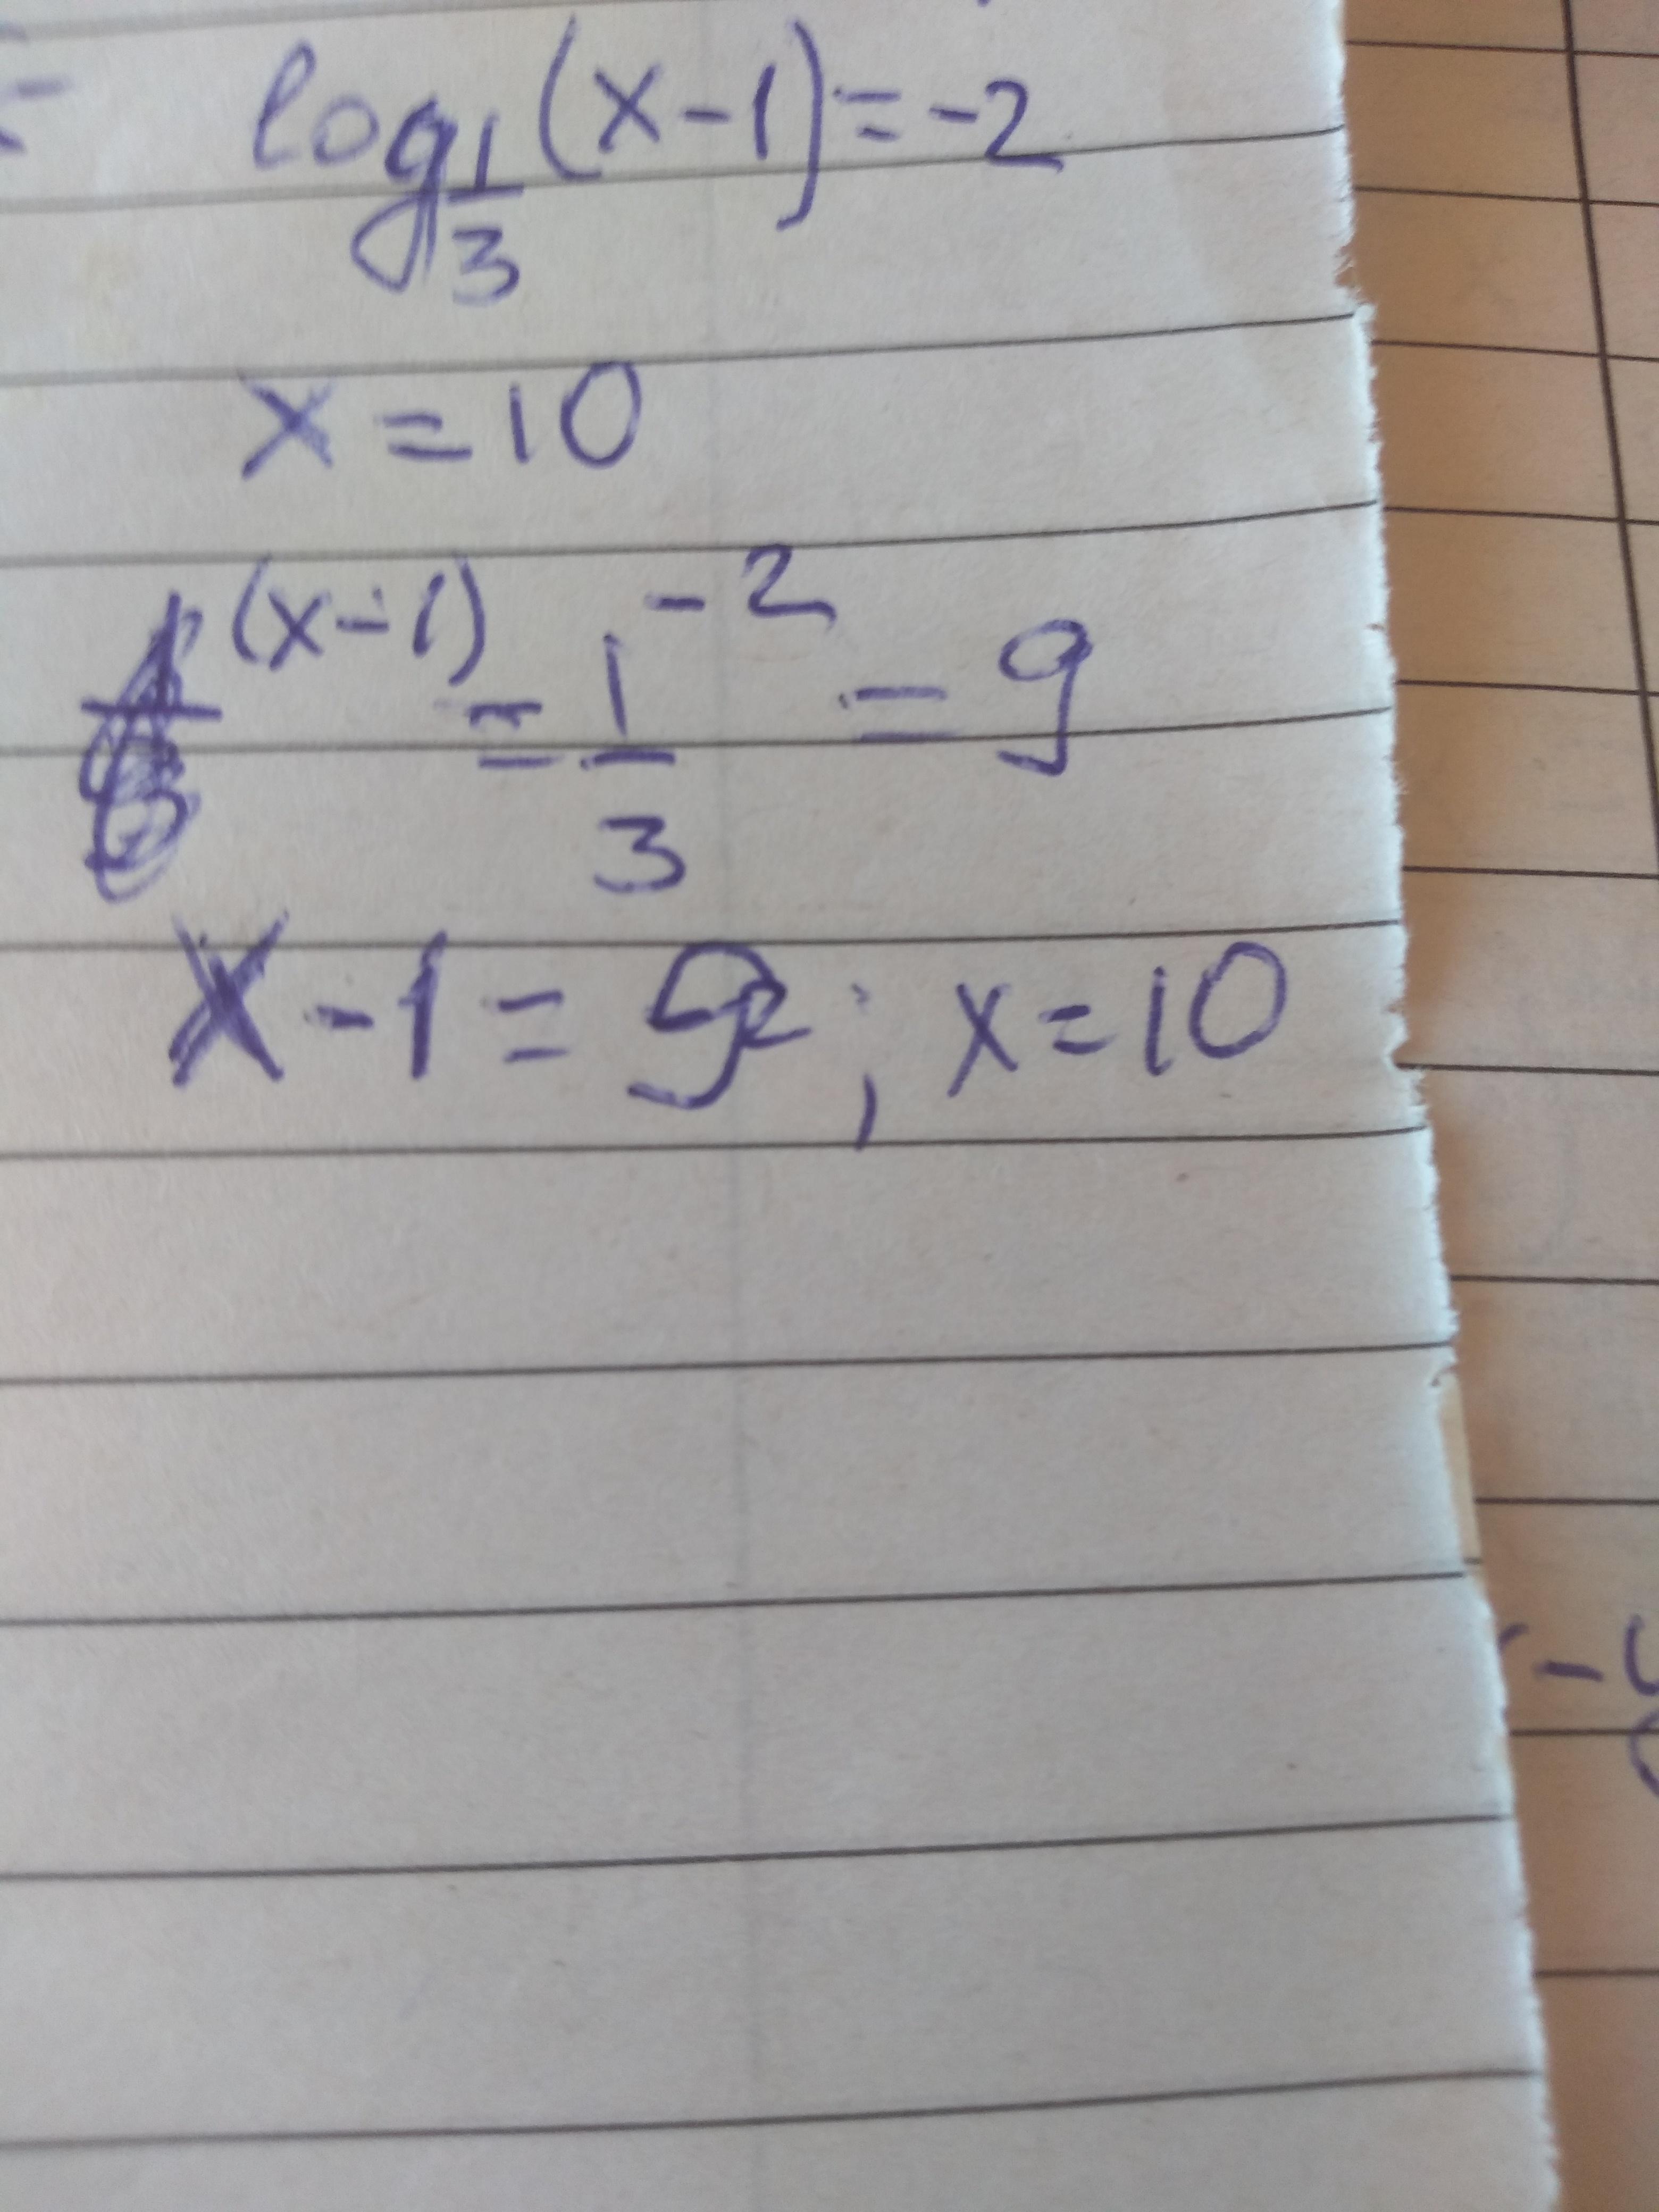 log 1/3 (x-1) = -2
x = 10
(x-1) = 1/3 ^-2 = 9
x-1 = 9 ; x = 10